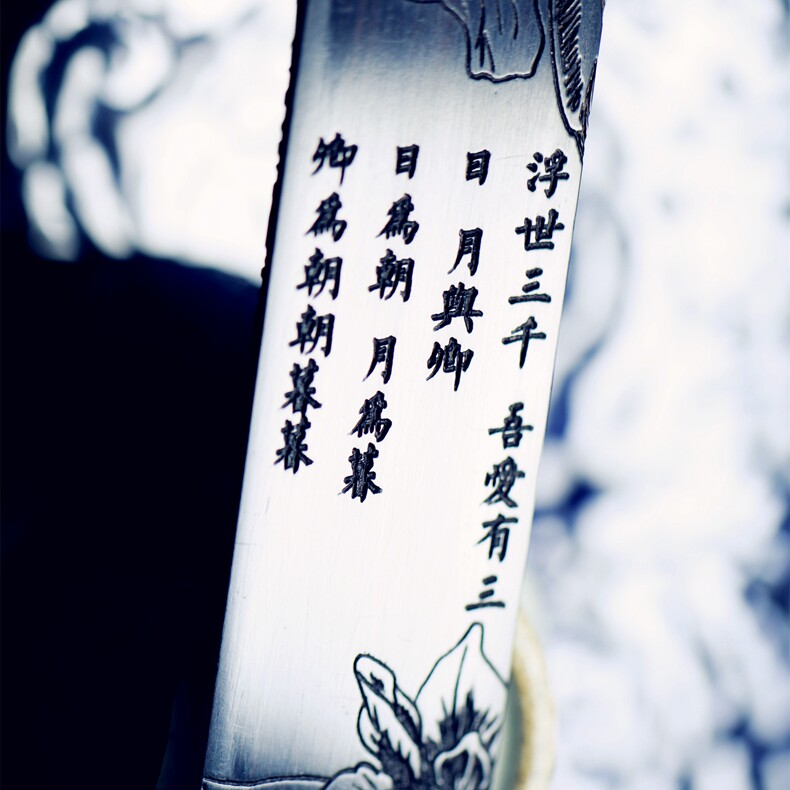 浮世三千 吾愛有三
日 月與卿
日為朝 月為暮
卿為朝朝暮暮